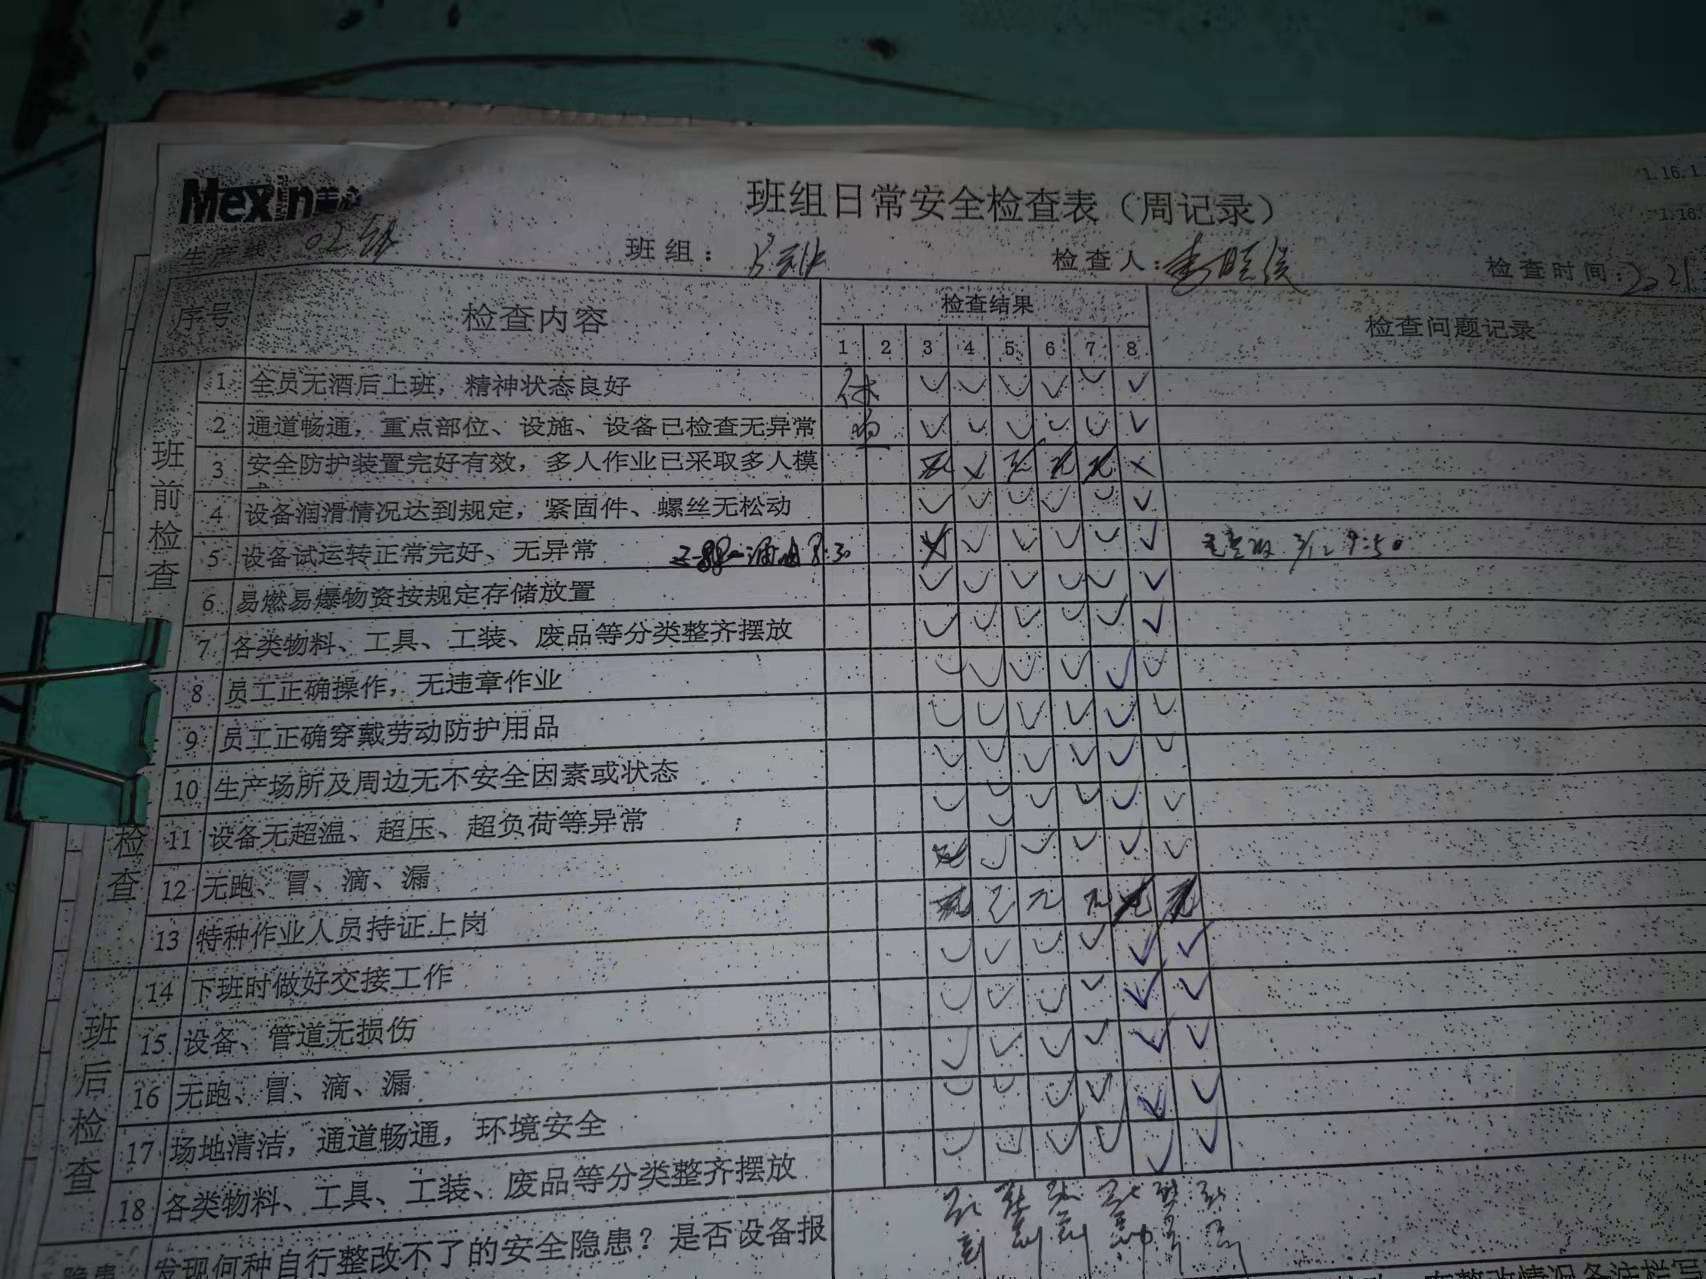 Mexin
班组日常安全检查表（周记录）
生产线：02线 班组： 检查人： 检查时间：2021
序号 检查内容 检查结果 检查问题记录
1 2 3 4 5 6 7 8
班前检查
1 全员无酒后上班，精神状态良好 休 ✓ ✓ ✓ ✓ ✓ ✓
2 通道畅通，重点部位、设施、设备已检查无异常 ✓ ✓ ✓ ✓ ✓ ✓
3 安全防护装置完好有效，多人作业已采取多人模
4 设备润滑情况达到规定，紧固件、螺丝无松动 ✓ ✓ ✓ ✓ ✓ ✓
5 设备试运转正常完好、无异常 8:30 ✓ ✓ ✓ ✓ ✓ 已整改 3/12 9:50
6 易燃易爆物资按规定存储放置 ✓ ✓ ✓ ✓ ✓ ✓
7 各类物料、工具、工装、废品等分类整齐摆放 ✓ ✓ ✓ ✓ ✓ ✓
检查
8 员工正确操作，无违章作业 ✓ ✓ ✓ ✓ ✓ ✓
9 员工正确穿戴劳动防护用品 ✓ ✓ ✓ ✓ ✓ ✓
10 生产场所及周边无不安全因素或状态 ✓ ✓ ✓ ✓ ✓ ✓
11 设备无超温、超压、超负荷等异常 ✓ ✓ ✓ ✓ ✓ ✓
12 无跑、冒、滴、漏 ✓ ✓ ✓ ✓ ✓
13 特种作业人员持证上岗 无 无 无 无 无 无
班后检查
14 下班时做好交接工作 ✓ ✓ ✓ ✓ ✓ ✓
15 设备、管道无损伤 ✓ ✓ ✓ ✓ ✓ ✓
16 无跑、冒、滴、漏 ✓ ✓ ✓ ✓ ✓ ✓
17 场地清洁，通道畅通，环境安全 ✓ ✓ ✓ ✓ ✓ ✓
18 各类物料、工具、工装、废品等分类整齐摆放 ✓ ✓ ✓ ✓ ✓ ✓
隐患 发现何种自行整改不了的安全隐患？是否设备报